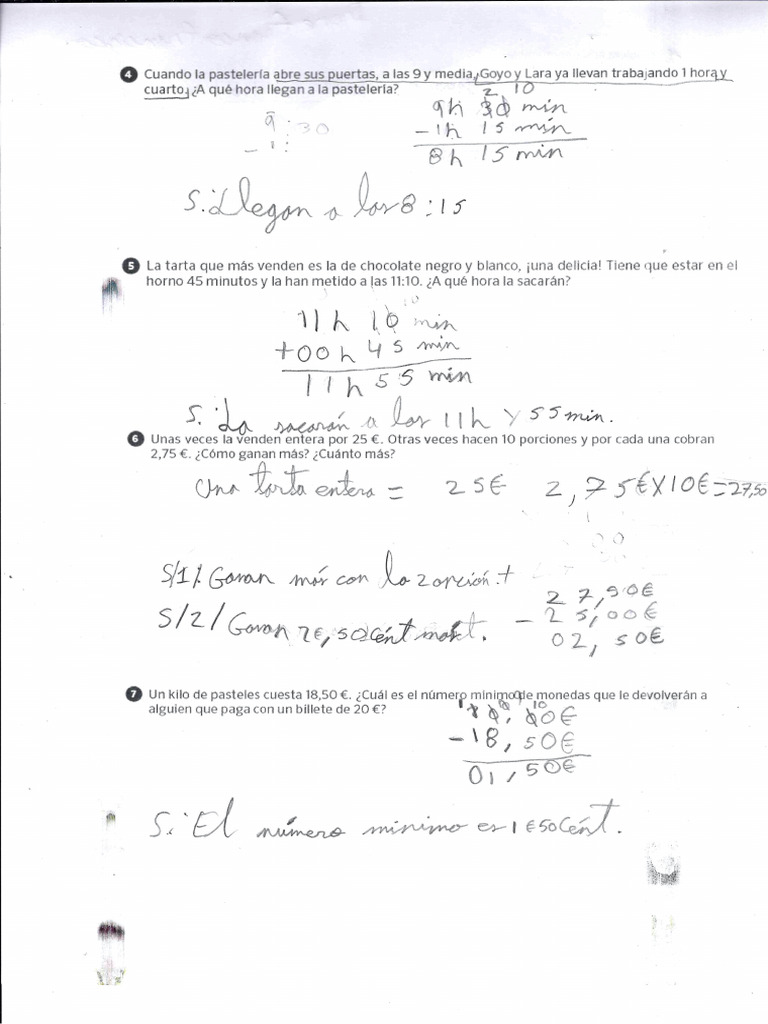 4 Cuando la pastelería abre sus puertas, a las 9 y media, Goyo y Lara ya llevan trabajando 1 hora y
cuarto, ¿A qué hora llegan a la pastelería?
2 10
9 : 30
- 1 :
9h 30 min
- 1h 15 min
8h 15 min
S: Llegan a las 8:15
5 La tarta que más venden es la de chocolate negro y blanco, ¡una delicia! Tiene que estar en el
horno 45 minutos y la han metido a las 11:10. ¿A qué hora la sacarán?
11h 10 min
+00h 45 min
11h 55 min
S: La sacarán a las 11h y 55 min.
6 Unas veces la venden entera por 25 €. Otras veces hacen 10 porciones y por cada una cobran
2,75 €. ¿Cómo ganan más? ¿Cuánto más?
Una tarta entera = 25€ 2,75€X10€=27,50
S/1/. Ganan más con la 2 opción.
27,50€
- 25,00€
02,50€
S/2/ Ganan 2€, 50 cént más.
7 Un kilo de pasteles cuesta 18,50 €. ¿Cuál es el número mínimo de monedas que le devolverán a
alguien que paga con un billete de 20 €?
-18,50€
01,50€
S: El número mínimo es 1€ 50 Cént.